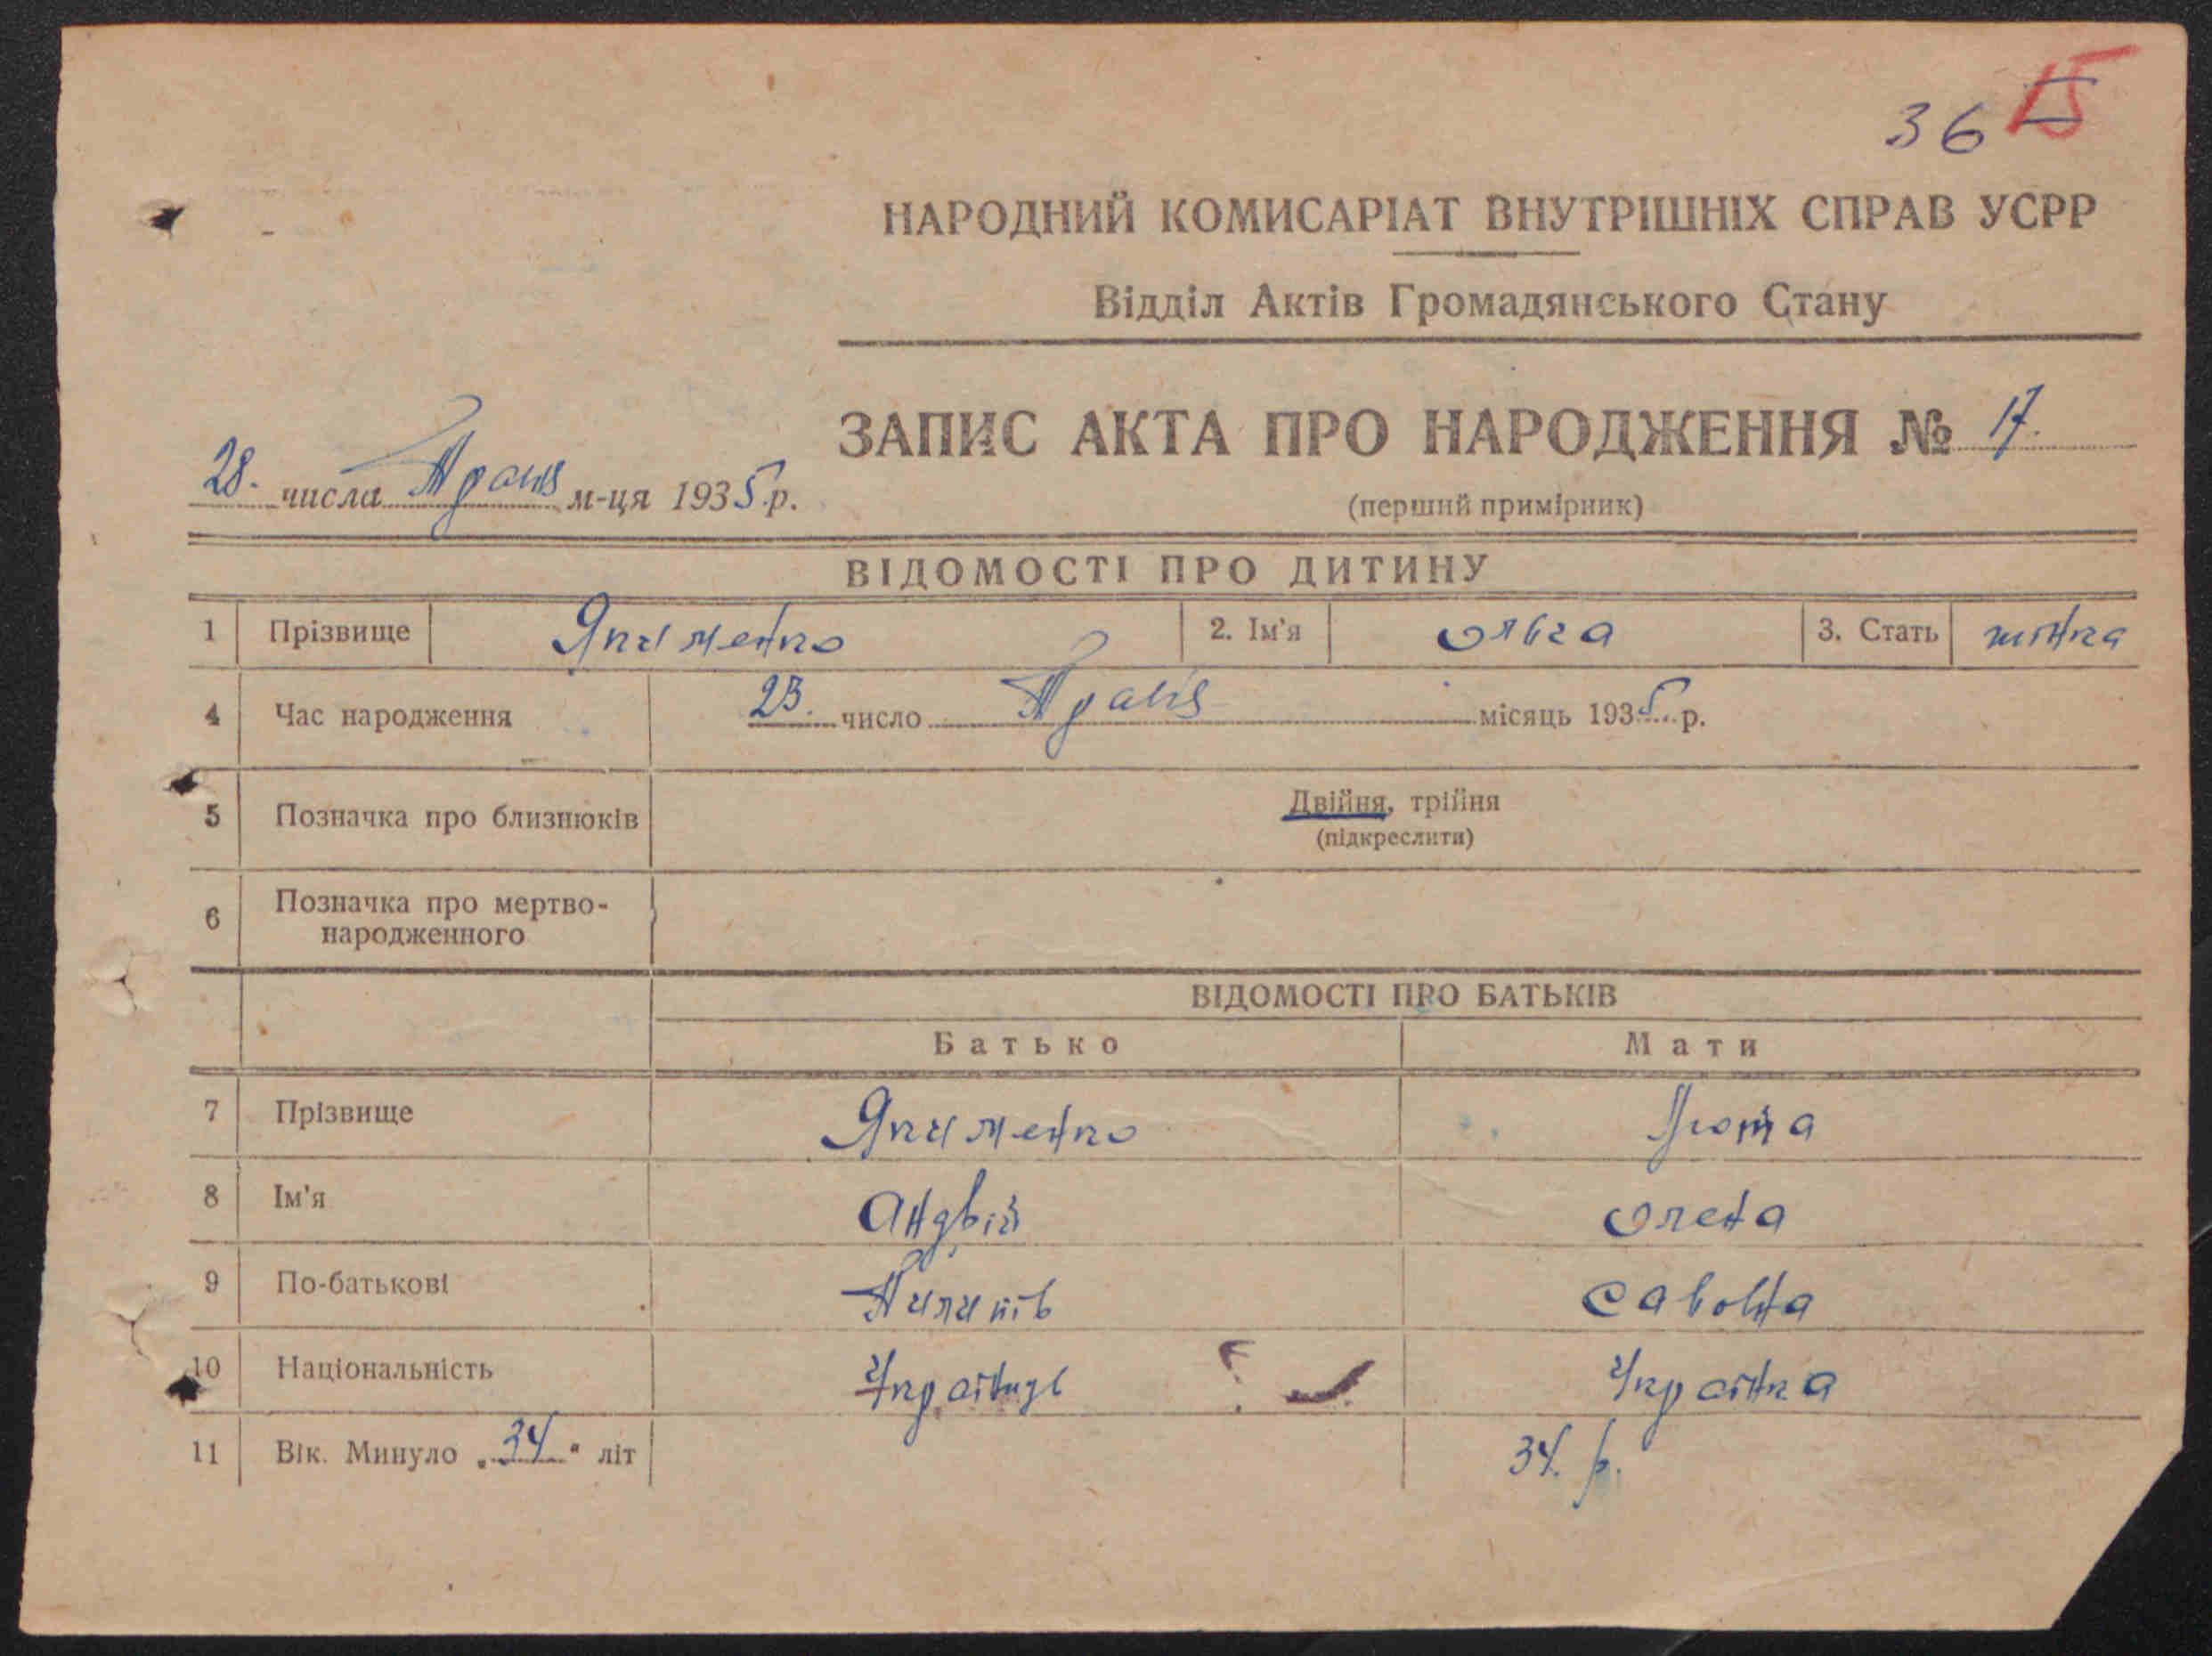 36 15
НАРОДНИЙ КОМИСАРІАТ ВНУТРІШНІХ СПРАВ УСРР
Відділ Актів Громадянського Стану
ЗАПИС АКТА ПРО НАРОДЖЕННЯ № 17.
28. числа Травня м-ця 1935 р.
(перший примірник)
ВІДОМОСТІ ПРО ДИТИНУ
1 Прізвище Якименко 2. Ім'я Ольга 3. Стать жінка
4 Час народження 23. число Травня місяць 1935 р.
5 Позначка про близнюків Двійня, трійня
(підкреслити)
6 Позначка про мертво-
народженного
ВІДОМОСТІ ПРО БАТЬКІВ
Батько Мати
7 Прізвище Якименко
8 Ім'я Андрій Олена
9 По-батькові Пилипів Савовна
10 Національність Українець Українка
11 Вік. Минуло „34" літ 34. р.